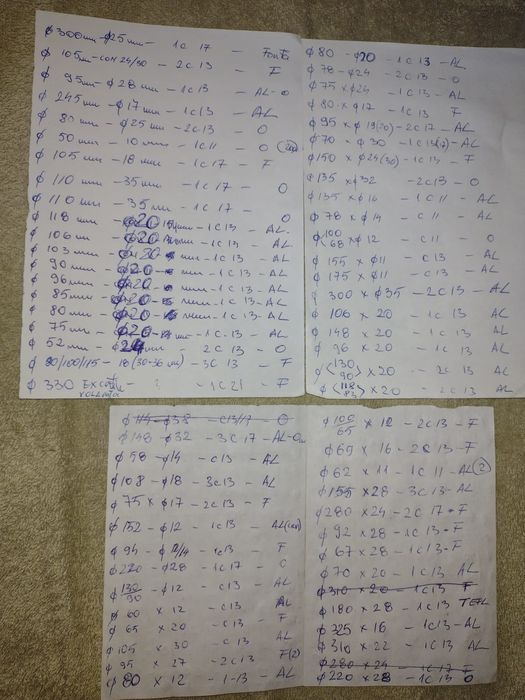 ϕ300мм - ϕ25мм - 1c 17 -
ϕ105мм - con 25/30 - 2c 13 - F
ϕ 95мм - ϕ 28мм - 1c 13 - AL-O
ϕ 245мм - ϕ 17мм - 1c 13 - AL
ϕ 80мм - ϕ 25мм - 2c 13 - O
ϕ 50мм - 10мм - 1c 11 - O
ϕ 105мм - 18мм - 1c 17 - F
ϕ 110мм - 35мм - 1c 17 - O
ϕ 110мм - 35мм - 1c 17 - O
ϕ 118мм - ϕ20 - 1c 13 - AL
ϕ 106мм - ϕ20 - 1c 13 - AL
ϕ 103мм - ϕ20 - 1c 13 - AL
ϕ 90мм - ϕ20 - 1c 13 - AL
ϕ 96мм - ϕ20 - 1c 13 - AL
ϕ 85мм - ϕ20 - 1c 13 - AL
ϕ 80мм - ϕ20 - 1c 13 - AL
ϕ 75мм - ϕ20 - 1c 13 - AL
ϕ 52мм - 2c 13 - O
ϕ 90/100/115 - 18 (30-36мм) - 3c 13 - F
ϕ 330 - ? - 1c 21 - F
ϕ 80 - ϕ20 - 1c 13 - AL
ϕ 78 - ϕ24 - 2c 13 - O
ϕ 75 x ϕ24 - 1c 13 - AL
ϕ 80 x ϕ17 - 1c 13 F
ϕ 95 x ϕ 19(20) - 2c 17 - AL
ϕ 70 x ϕ 30 - 1c 13(17) - AL
ϕ150 x ϕ25(30) - 1c 13 - F
ϕ 135 x ϕ32 - 2c 13 - O
ϕ 135 x ϕ16 - 1c 11 - AL
ϕ 78 x ϕ14 - c 11 - AL
ϕ 100/68 x ϕ12 - c 11 O
ϕ 155 x ϕ11 - c 13 - AL
ϕ 175 x ϕ11 - c 13 - AL
ϕ 300 x ϕ35 - 2c 13 - AL
ϕ 106 x 20 - 1c 13 AL
ϕ 148 x 20 - 1c 13 AL
ϕ 96 x 20 - 1c 13 AL
ϕ <130/90> x 20 - 2c 13 AL
ϕ <118/83> x 20 - 2c 13 AL
ϕ 114 - ϕ38 - c 13/17 - O
ϕ148 - ϕ32 - 3c 17 - AL-O
ϕ 58 - ϕ14 - c 13 - AL
ϕ 108 - ϕ18 - 3c 13 - AL
ϕ 75 x ϕ17 - 2c 13 - F
ϕ 152 - ϕ12 - 1c 13 - AL
ϕ 94 - 1c 13 - F
ϕ 220 - ϕ28 - 1c 17 - O
ϕ 130/90 - ϕ12 - c 13 - AL
ϕ 60 x 12 - c 13 - AL
ϕ 65 x 20 - c 13 - F
ϕ 105 x 30 - c 13 - AL
ϕ 95 x 27 - 2c 13 - F(2)
ϕ 80 x 12 - 1-13 - AL
ϕ 100/65 x 12 - 2c 13 - F
ϕ 69 x 16 - 2c 13 - F
ϕ 62 x 11 - 1c 11 - AL (2)
ϕ 155 x 28 - 3c 13 - AL
ϕ 280 x 24 - 2c 17 - F
ϕ 92 x 28 - 1c 13 - F
ϕ 67 x 28 - 1c 13 - F
ϕ 70 x 20 - 1c 13 AL
ϕ 310 x 20 - 1c 13 F
ϕ 180 x 28 - 1c 13 TEFL
ϕ 325 x 16 - 1c 13 - AL
ϕ 310 x 22 - 1c 13 AL
ϕ 280 x 24 - 1c 17 F
ϕ 220 x 28 - 1c 13 O